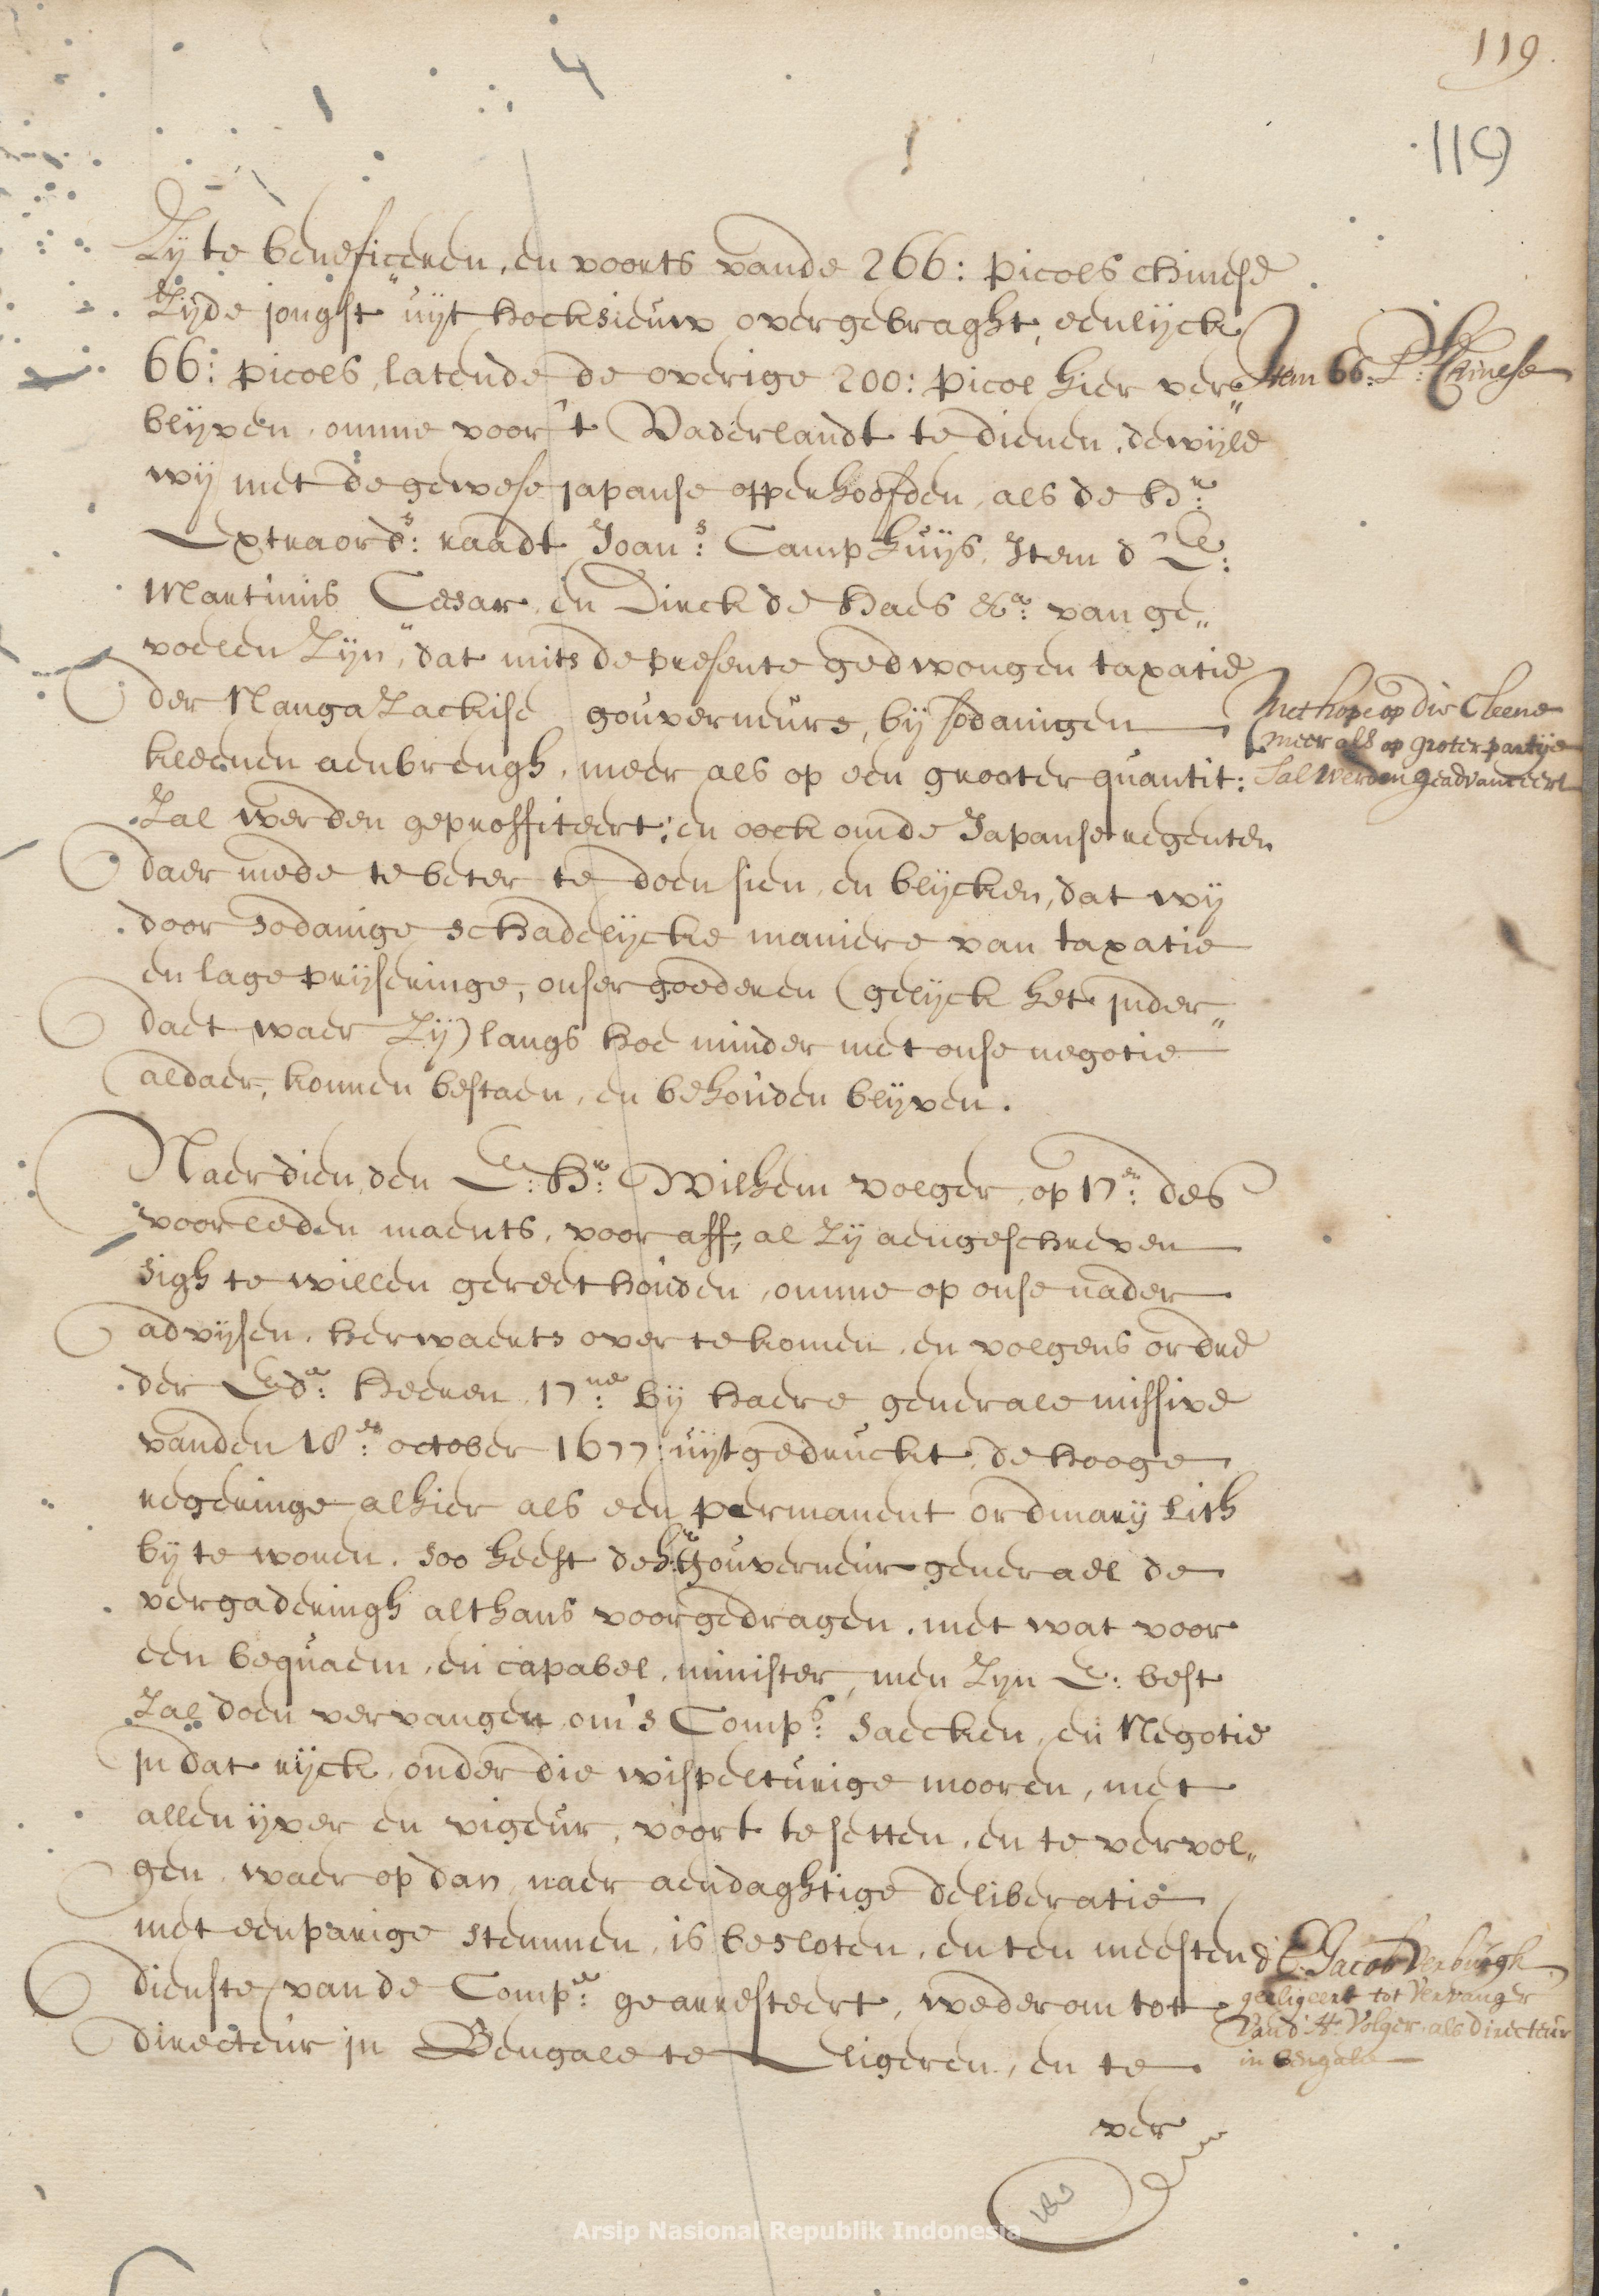 119.
119
Zy te beneficeren, en voorts vande 266: picols chinese
Zijde jonght uijt hocksieuw overgebraght, eenlijck
66: picols, latende de overige 200: picol hier ver"
Item 66: P:s Chinese
blijven, omme voor 't Vaderlandt te dienen, dewijle
wij met de gewese japanse opperhoofden, als de Hr:
Extraord:s raadt Joan:s Camphuijs, Item d' E:
Martinus Cesar, en Dirck de Haes &a: van ge"
voelen Zijn, dat mits de presente gedwongen taxatie
der Nangasackise gouverneurs, bij sodanigen
kleenen aenbrengh, meer als op een grooter quantit:
Met hope op die Cleene
meer als op groter partije
sal werden geadvanceert
Zal werden geproffiteert; en oock om de Japanse regenten
daer mede te beter te doen sien, en blijcken, dat wij
door sodanige schadelijcke maniere van taxatie
en lage prijseringe, onser goederen (gelijck het inder"
daet waer Zij) langs hoe minder met onse negotie
aldaer, konnen bestaen, en behouden blijven.
Naerdien den E: Hr: Wilhem Volger, op 17en: des
voorleden maents, voor aff, al Zij aengeschreven
sigh te willen gereet houden, omme op onse nader
advijsen, herwaerts over te komen, en volgens ordre
der Ed:e Heeren 17:ne bij haere generale missive
vanden 18:en october 1677: uijtgedruckt, de hooge
regeringe alhier als een permanent ordinarij Lith
bij te wonen, soo heeft de Hr: Gouverneur generael de
vergaderingh althans voorgedragen, met wat voor
een bequaem, en capabel, minister, men Zyn E: best
Zal doen vervangen, om 's Comp:s saecken, en Negotie
in dat rijck, onder die wispelturige mooren, met
allen ijver en vigeur, voort te setten, en te vervol"
gen, waer op dan, naer aendaghtige deliberatie
met eenparige stemmen, is besloten, en ten meesten
dienste van de Comp:e gearresteert, wederom tot
directeur in Bengale te Eligeren, en te
d' E: Jacob Verburgh
geeligeert tot Vervanger
van d' Hr: Volger als directeur
in bengale
ver
180
Arsip Nasional Republik Indonesia